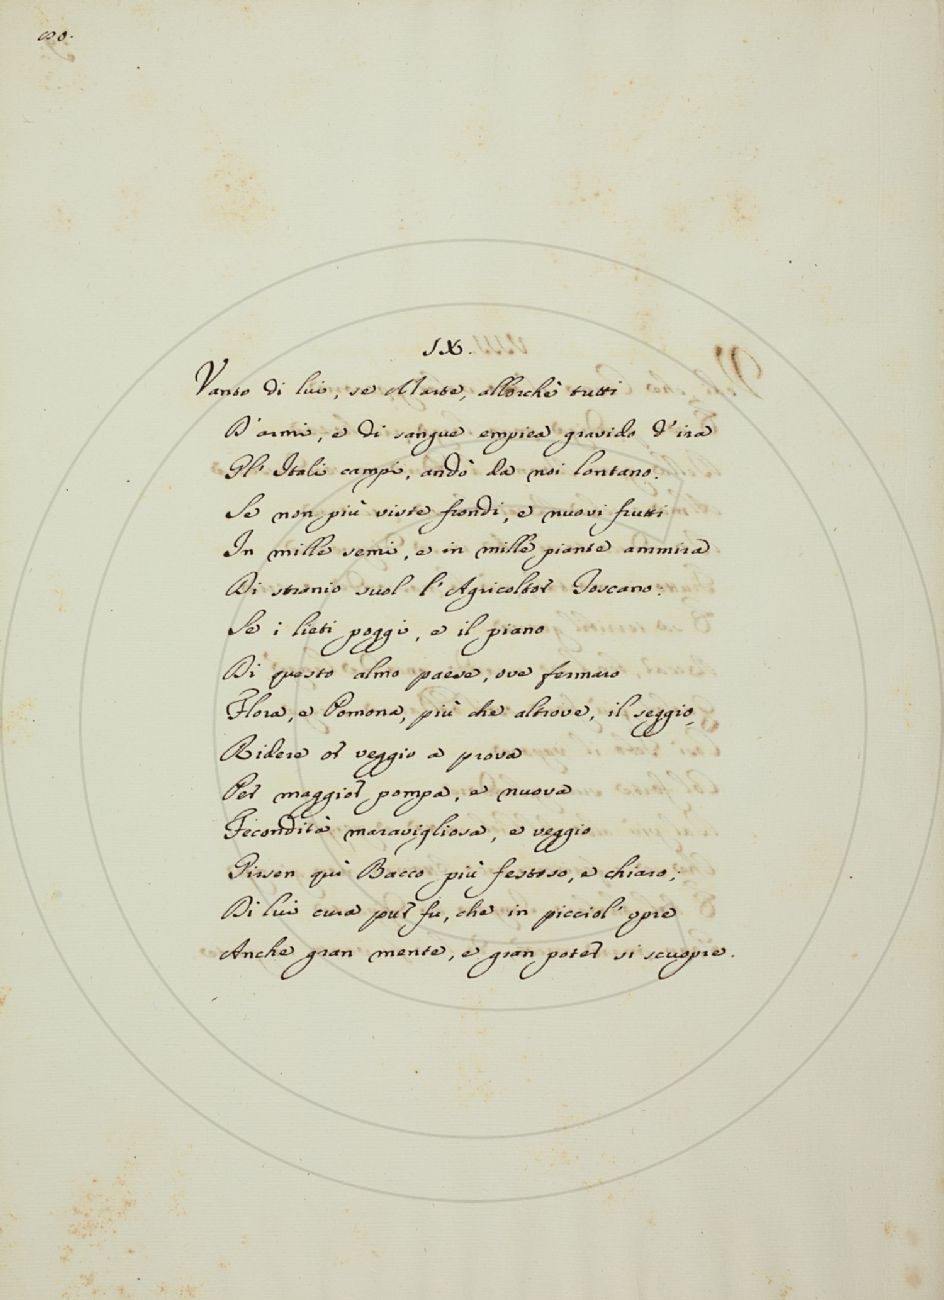 80.
IX.
Vanto di lui, se Marte, allorchè tutti
D'armi, e di sangue empiea gravido d'ira
Gl' Itali campi, andò da noi lontano.
Se non più viste frondi, e nuovi frutti
In mille semi, e in mille piante ammira
Di stranio suol l' Agricoltor Toscano:
Se i lieti poggi, e il piano
Di questo almo paese, ove fermaro
Flora, e Pomona, più che altrove, il seggio,
Ridere or veggio a prova
Per maggior pompa, e nuova
Fecondità maravigliosa, e veggio
Girsen quì Bacco più festoso, e chiaro;
Di lui cura pur fu, che in picciol' opre
Anche gran mente, e gran poter si scuopre.